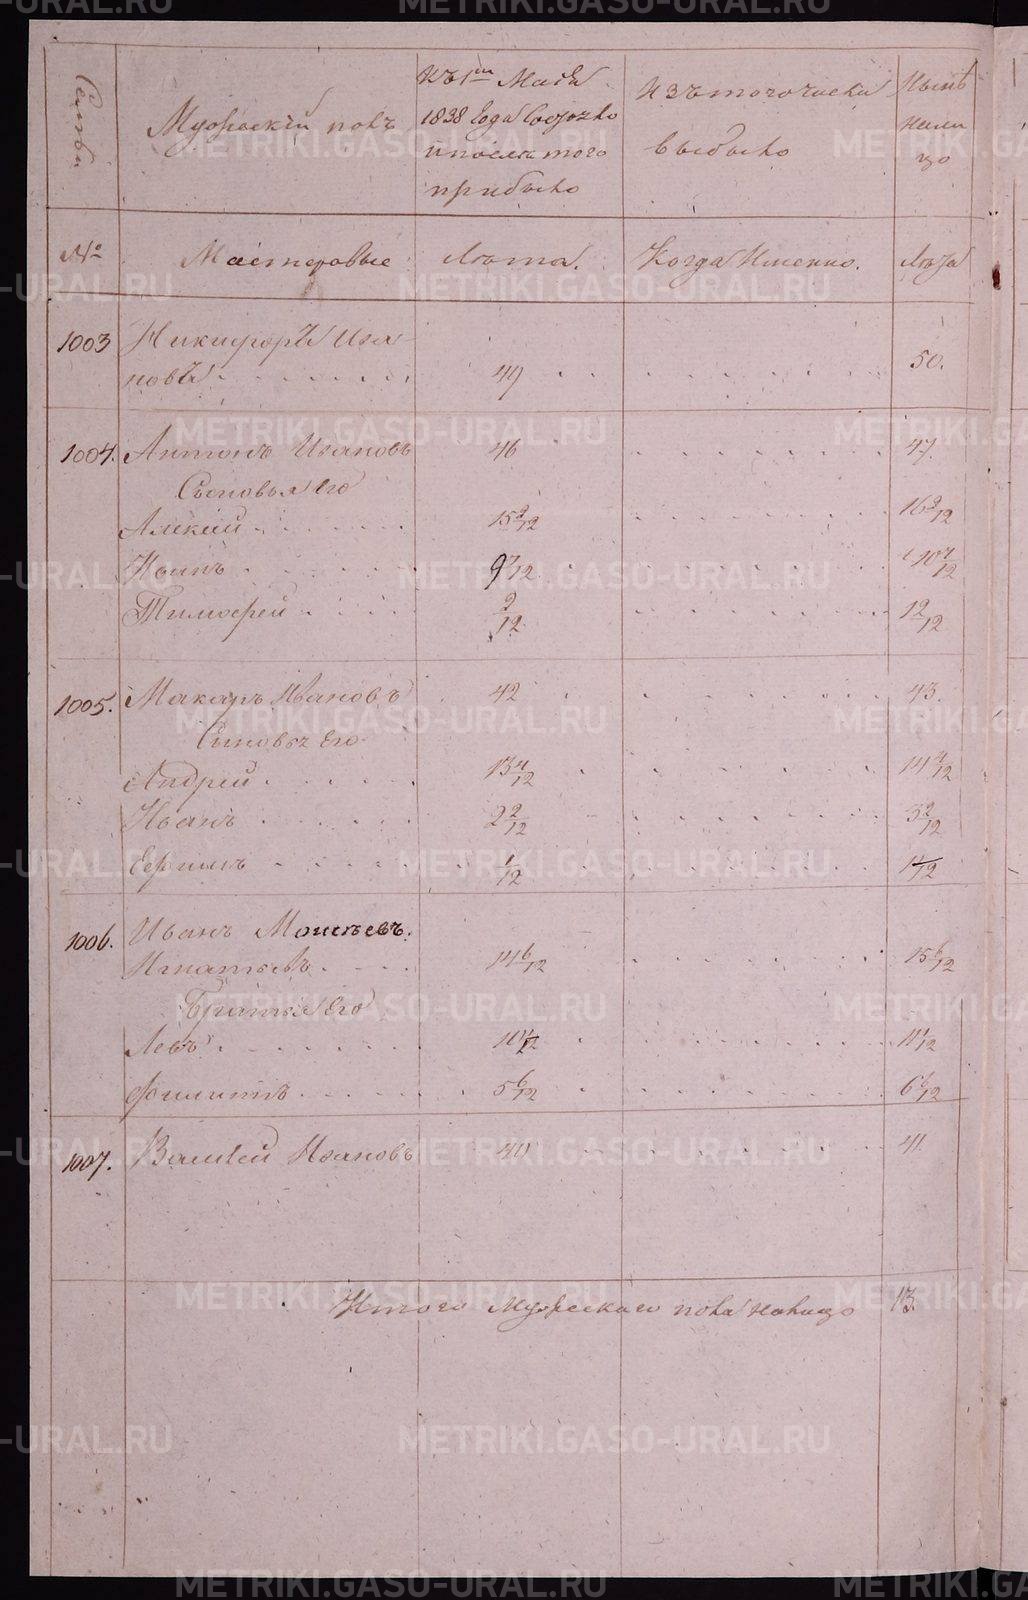 Семьи
Мужескій полъ
Къ 1му Маія
1838 года состояло
и после того
прибыло
Изъ того числа
выбыло
Ныне
нали
цо
№
Мастеровые
Лѣта.
Когда Именно.
Лѣта
1003 Никифоръ Ива
новъ 49 50.
1004. Антонъ Ивановъ 46 47.
Сыновья Его
Алексей 15 9/12 16 9/12
Иванъ 9 7/12 10 7/12
Тимофей 9/12
1005. Макаръ Ивановъ 42 43.
Сыновья Его
Андрей 13 4/12 14 4/12
Иванъ 2 2/12 3 2/12
Ефимъ 1/12 1 1/12
1006. Иванъ Моисѣевъ.
Игнатьевъ 14 6/12 15 6/12
Братья Его
Левъ 10 1/12 11 1/12
Филиппъ 5 6/12 6 6/12
1007. Василей Ивановъ 40 41.
Итого Мужескаго пола налицо 13.
METRIKI.GASO-URAL.RU